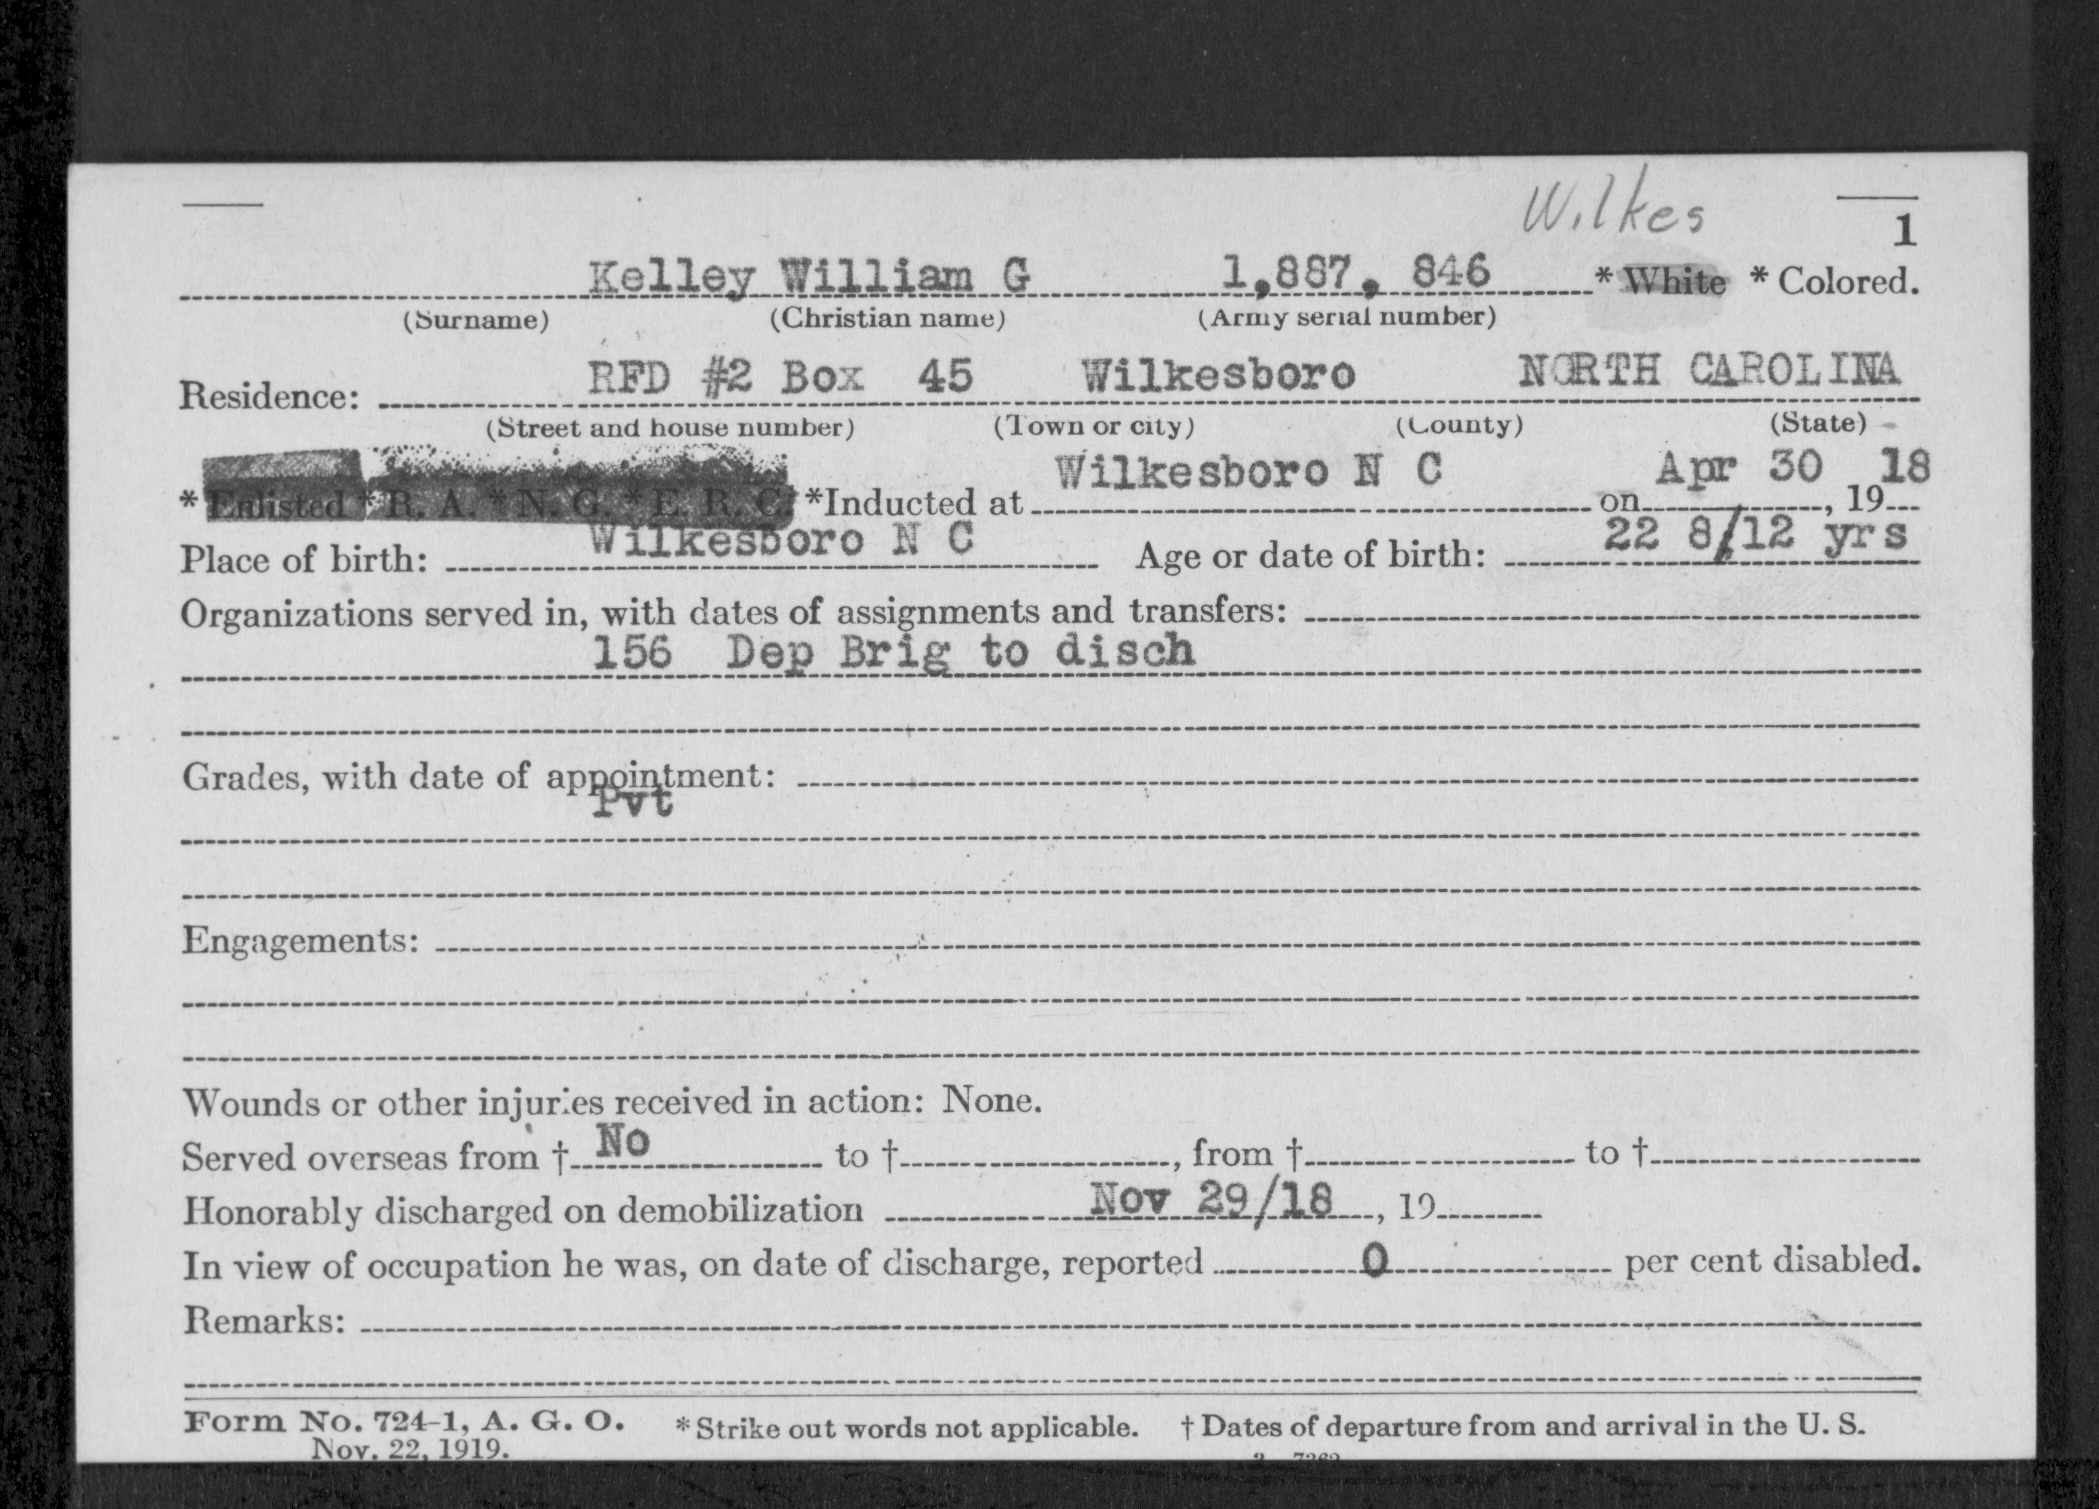 Wilkes
1
Kelley William G 1,887, 846 * White * Colored.
(Surname) (Christian name) (Army serial number)
RFD #2 Box 45 Wilkesboro NORTH CAROLINA
Residence:
(Street and house number) (Town or city) (County) (State)
* Enlisted * R. A. * N. G. * E. R. C. *Inducted at Wilkesboro N C on Apr 30, 19 18
Place of birth: Wilkesboro N C Age or date of birth: 22 8/12 yrs
Organizations served in, with dates of assignments and transfers:
156 Dep Brig to disch
Grades, with date of appointment:
Pvt
Engagements:
Wounds or other injuries received in action: None.
Served overseas from † No to †, from † to †
Honorably discharged on demobilization Nov 29/18, 19
In view of occupation he was, on date of discharge, reported 0 per cent disabled.
Remarks:
Form No. 724-1, A. G. O. * Strike out words not applicable. † Dates of departure from and arrival in the U. S.
Nov. 22, 1919.